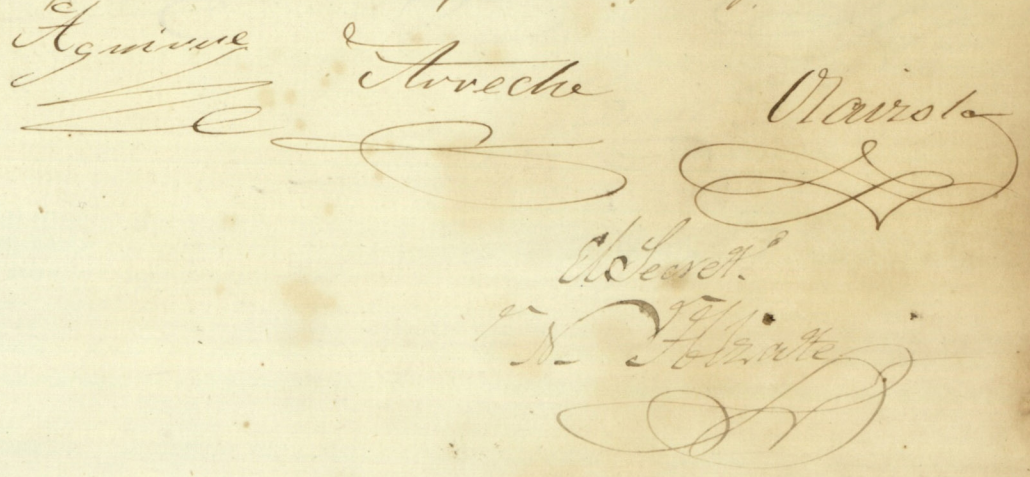 Aguirre Arreche Olaizola
El Secret.º
N Alzate